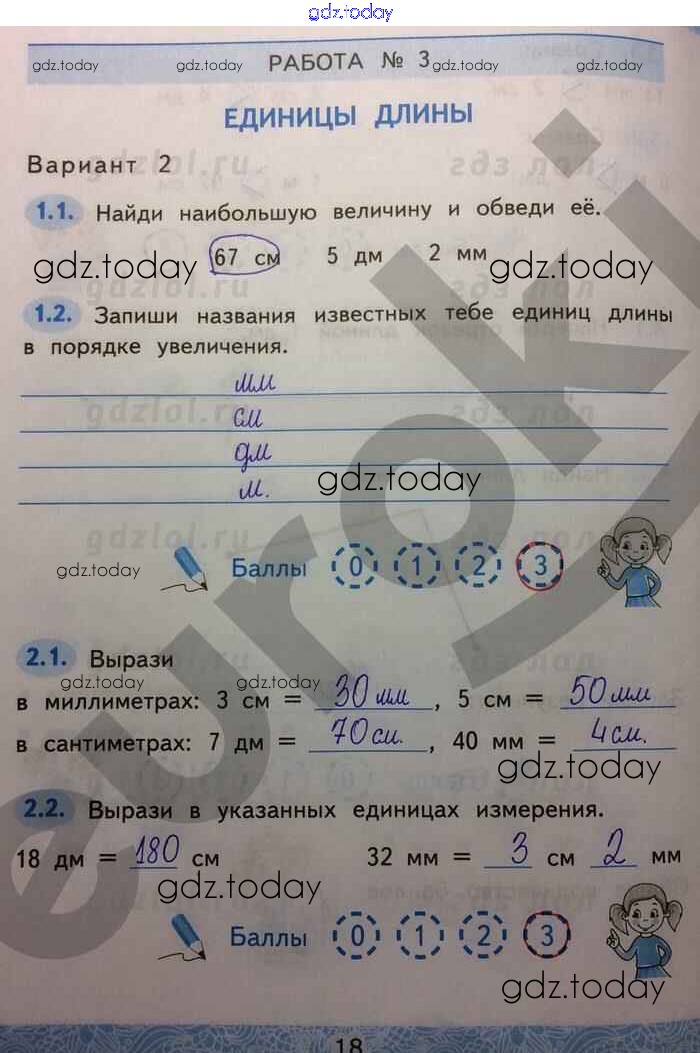 gdz.today
gdz.today gdz.today РАБОТА № 3 gdz.today gdz.today
ЕДИНИЦЫ ДЛИНЫ
Вариант 2
gdzlol.ru
1.1. Найди наибольшую величину и обведи её.
67 см 5 дм 2 мм
gdz.today gdz.today
1.2. Запиши названия известных тебе единиц длины
в порядке увеличения.
мм
gdzlol.ru
см
дм
м.
gdz.today
gdzlol.ru
Баллы 0 1 2 3
gdz.today
2.1. Вырази
gdz.today gdz.today gdz.today
в миллиметрах: 3 см = 30 мм, 5 см = 50 мм
в сантиметрах: 7 дм = 70 см., 40 мм = 4 см.
gdz.today
2.2. Вырази в указанных единицах измерения.
18 дм = 180 см 32 мм = 3 см 2 мм
gdz.today
Баллы 0 1 2 3
gdz.today
18
euroki